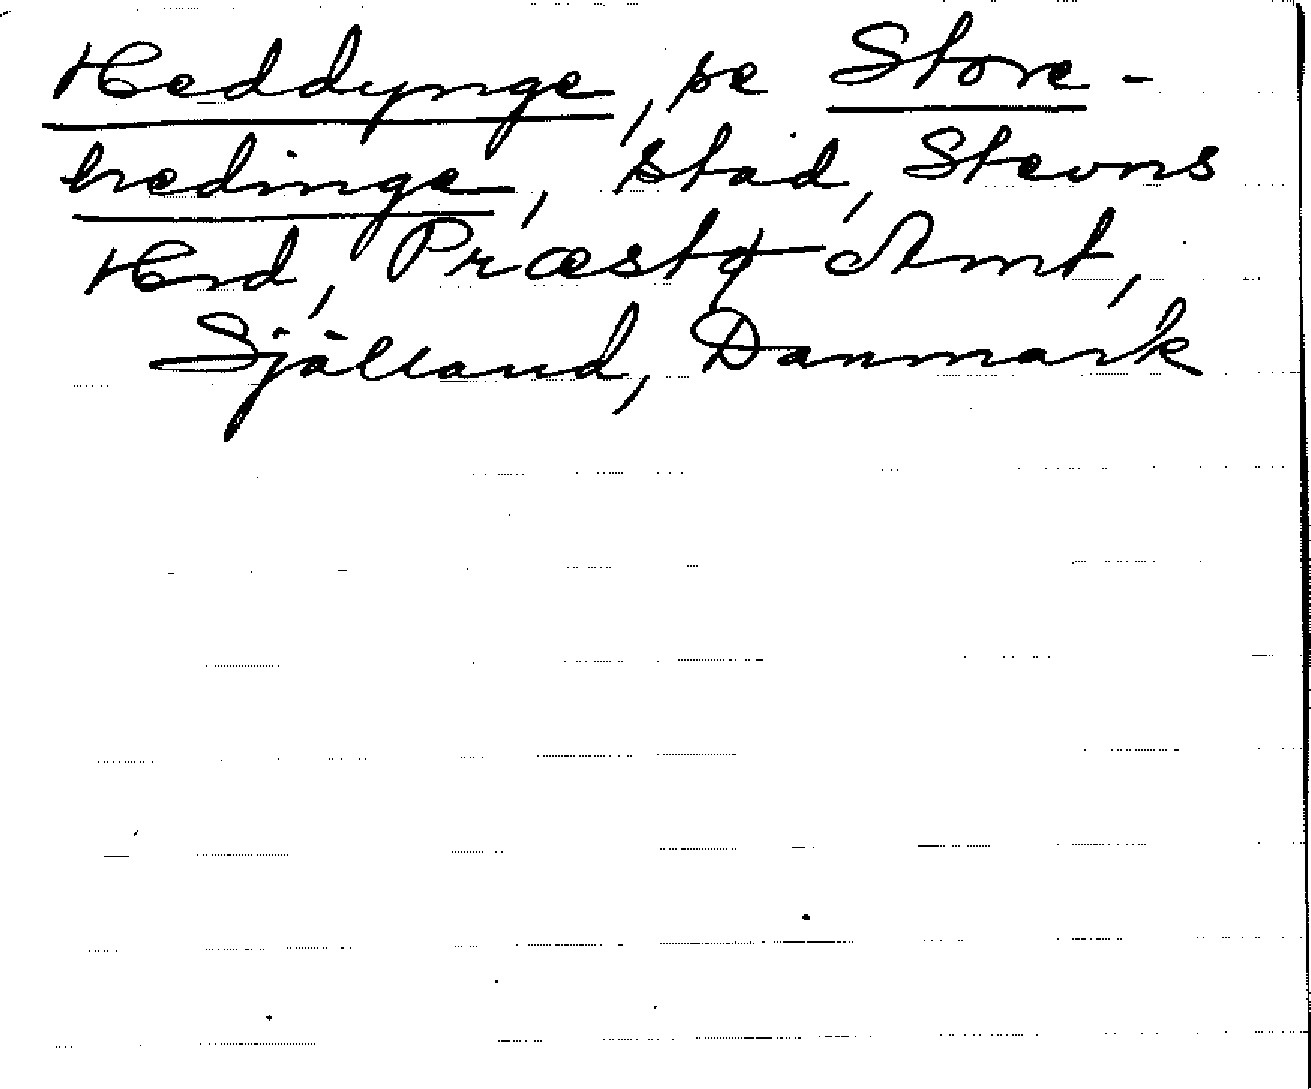 Heddynge, se Store-
hedinge, stad, Stevns
Hrd, Præstø Amt,
Sjålland, Danmark